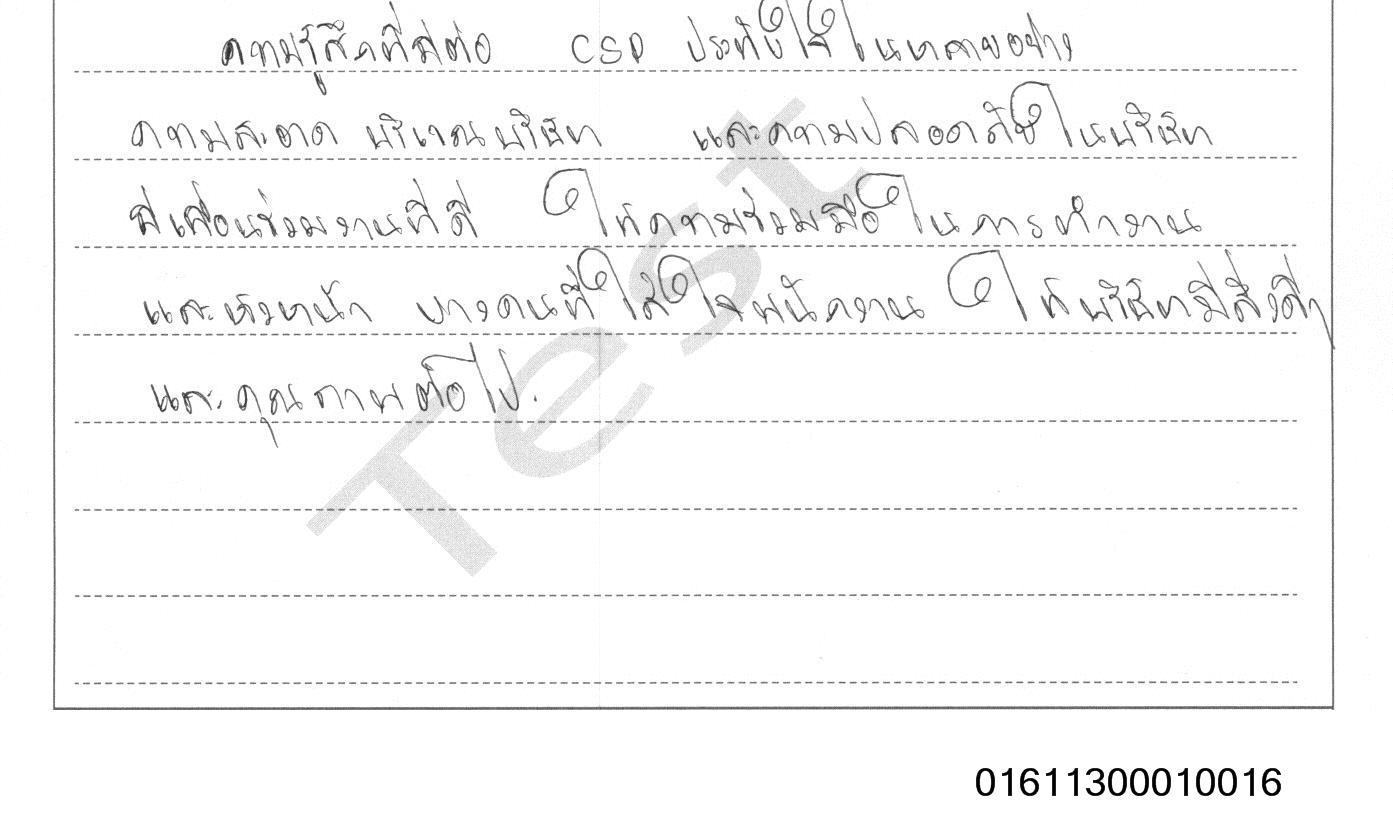 ความรู้สึกที่มีต่อ CSP ประทับใจในหลายอย่าง
ความสะอาด บริเวณบริษัท และความปลอดภัยในบริษัท
มีเพื่อนร่วมงานที่ดี ให้ความร่วมมือในการทำงาน
และหัวหน้า บางคนที่ใส่ใจพนักงาน ให้บริษัทมีสิ่งดีๆ
และคุณภาพต่อไป.
Test
01611300010016